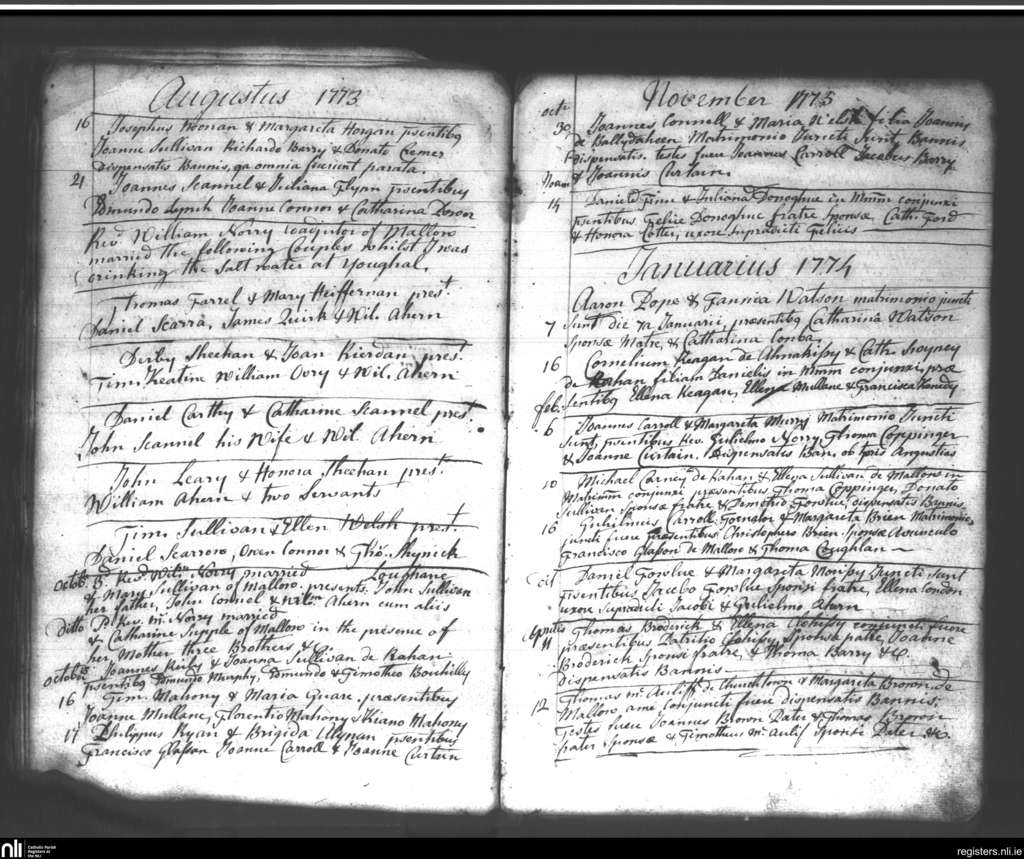 Augustus 1773
16 Josephus Noonan & Margareta Horgan psentibq
Joanne Sullivan Richardo Barry & Donato Cremer
dispensatis Bannis, qa omnia fuerunt parata.
21 Joannes Scannel & Juliana Flynn psentibus
Edmundo Lynch Joanne Connor & Catharina Connor
Revd. William Norry coadjutor of Mallow
married the following Couples whilst I was
drinking the Salt water at Youghal.
Thomas Farrel & Mary Heiffernan prest.
Daniel Scarra, James Quirk & Wil. Ahern
Derby Sheehan & Joan Rierdan prest.
Tim. Keatine William Ovry & Wil. Ahern
Daniel Carthy & Catharine Scannel prest.
John Scannel his Wife & Wil. Ahern
John Leary & Honora Sheehan prest.
William Ahern & two Servants
Tim. Sullivan & Ellen Welsh prest.
Daniel Scarrow, Owen Connor & Tho. Shynick
Octob. 3. Revd. Wilm. Norry married Loughane
& Mary Sullivan of Mallow. presents. John Sullivan
her father, John Connel & Wilm. Ahern cum aliis
Ditto P. Rev. Mr. Norry married
& Catharine Supple of Mallow in the presence of
her Mother three Brothers &c
octobris Joannes Kirby & Joanna Sullivan de Rahan
psentibq Edmundo Murphy, Edmundo & Timotheo Bouhilly
16 Tim. Mahony & Maria Guare præsentibus
Joanne Mullane, Florentio Mahony & Kiano Mahony
17 Philippus Ryan & Brigida Clynan psentibus
Francisco Glasson Joanne Carroll & Joanne Curtin
November 1773
octr. 30 Joannes Connell & Maria Welsh filia Joannis
de Ballydaheen Matrimonio Juncti Sunt, Bannis
dispensatis. testes fuere Joannes Carroll Jacobus Barry
& Joannis Curtain.
Novm. 14 Daniel Finn & Juliana Donoghue in Mmm conjunxi
psentibus Felice Donoghue fratre Sponsæ Cath. Ford
& Honora Cotter, uxore supradicti Felicis
Januarius 1774
Aaron Pope & Fannica Watson matrimonio juncti
7 Sunt die 7a Januarii, præsentibq Catharina Watson
Sponsæ Matre, & Catharina Comba.
16 Cornelium Keagan de Ahnakissy & Cath.
de Rahan filiam Danielis in Mmm conjunxi, præ
feb. sentibq Ellena Keagan, Ellena Mullane & Francisca Kenedy
6 Joannes Carroll & Margareta Murry Matrimonio Juncti
Sunt, psentibus Rev. Gulielmo Norry, Thoma Coppinger
& Joanne Curtain. Dispensatis Ban. ob tpris Angustias
10 Michael Carney de Rahan & Ellena Sullivan de Mallow in
Matrimm conjunxi præsentibus Thoma Coppinger, Donato
Sullivan Sponsæ fratre & Demetrio Fowlue, dispensatis Bannis
16 Gulielmus Carroll Tornator & Margareta Brien Matrimonio
juncti fuere Præsentibus Christophero Brien Sponsæ Avunculo
Francisco Glasson de Mallow & Thoma Coughlan
eit Daniel Fowlue & Margareta Morissy Juncti Sunt
Psentibus Jacobo Fowlue Sponsi fratre, Ellena Condon
uxore Supradicti Jacobi & Gulielmo Ahern
Aprilis 11 Thomas Broderick & Ellena Clohissy conjuncti fuere
præsentibus Patritio Clohissy Sponsæ patre, Joanne
Broderick Sponsi fratre, & Thoma Barry &c.
dispensatis Bannis
12 Thomas Mc. Auliff de Churchtown & Margareta Brown de
Mallow a me Conjuncti fuere dispensatis Bannis.
Testes fuere Joannes Brown Pater & Thomas Brown
frater Sponsæ & Timotheus Mc. Aulif Sponsi Pater &c.
nli
Catholic Parish
Registers at
the NLI
registers.nli.ie